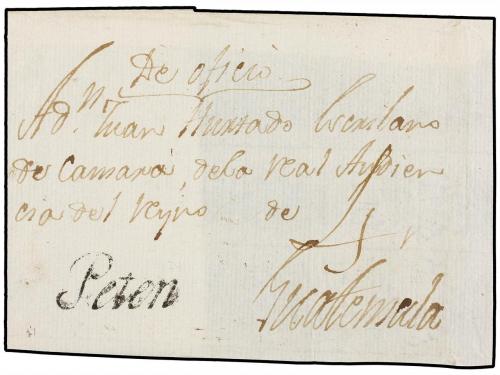 De oficio
A d.n Juan Hurtado Escribano
de Camara, de la real Audien
cia del reyno de
Guatemala
Peten